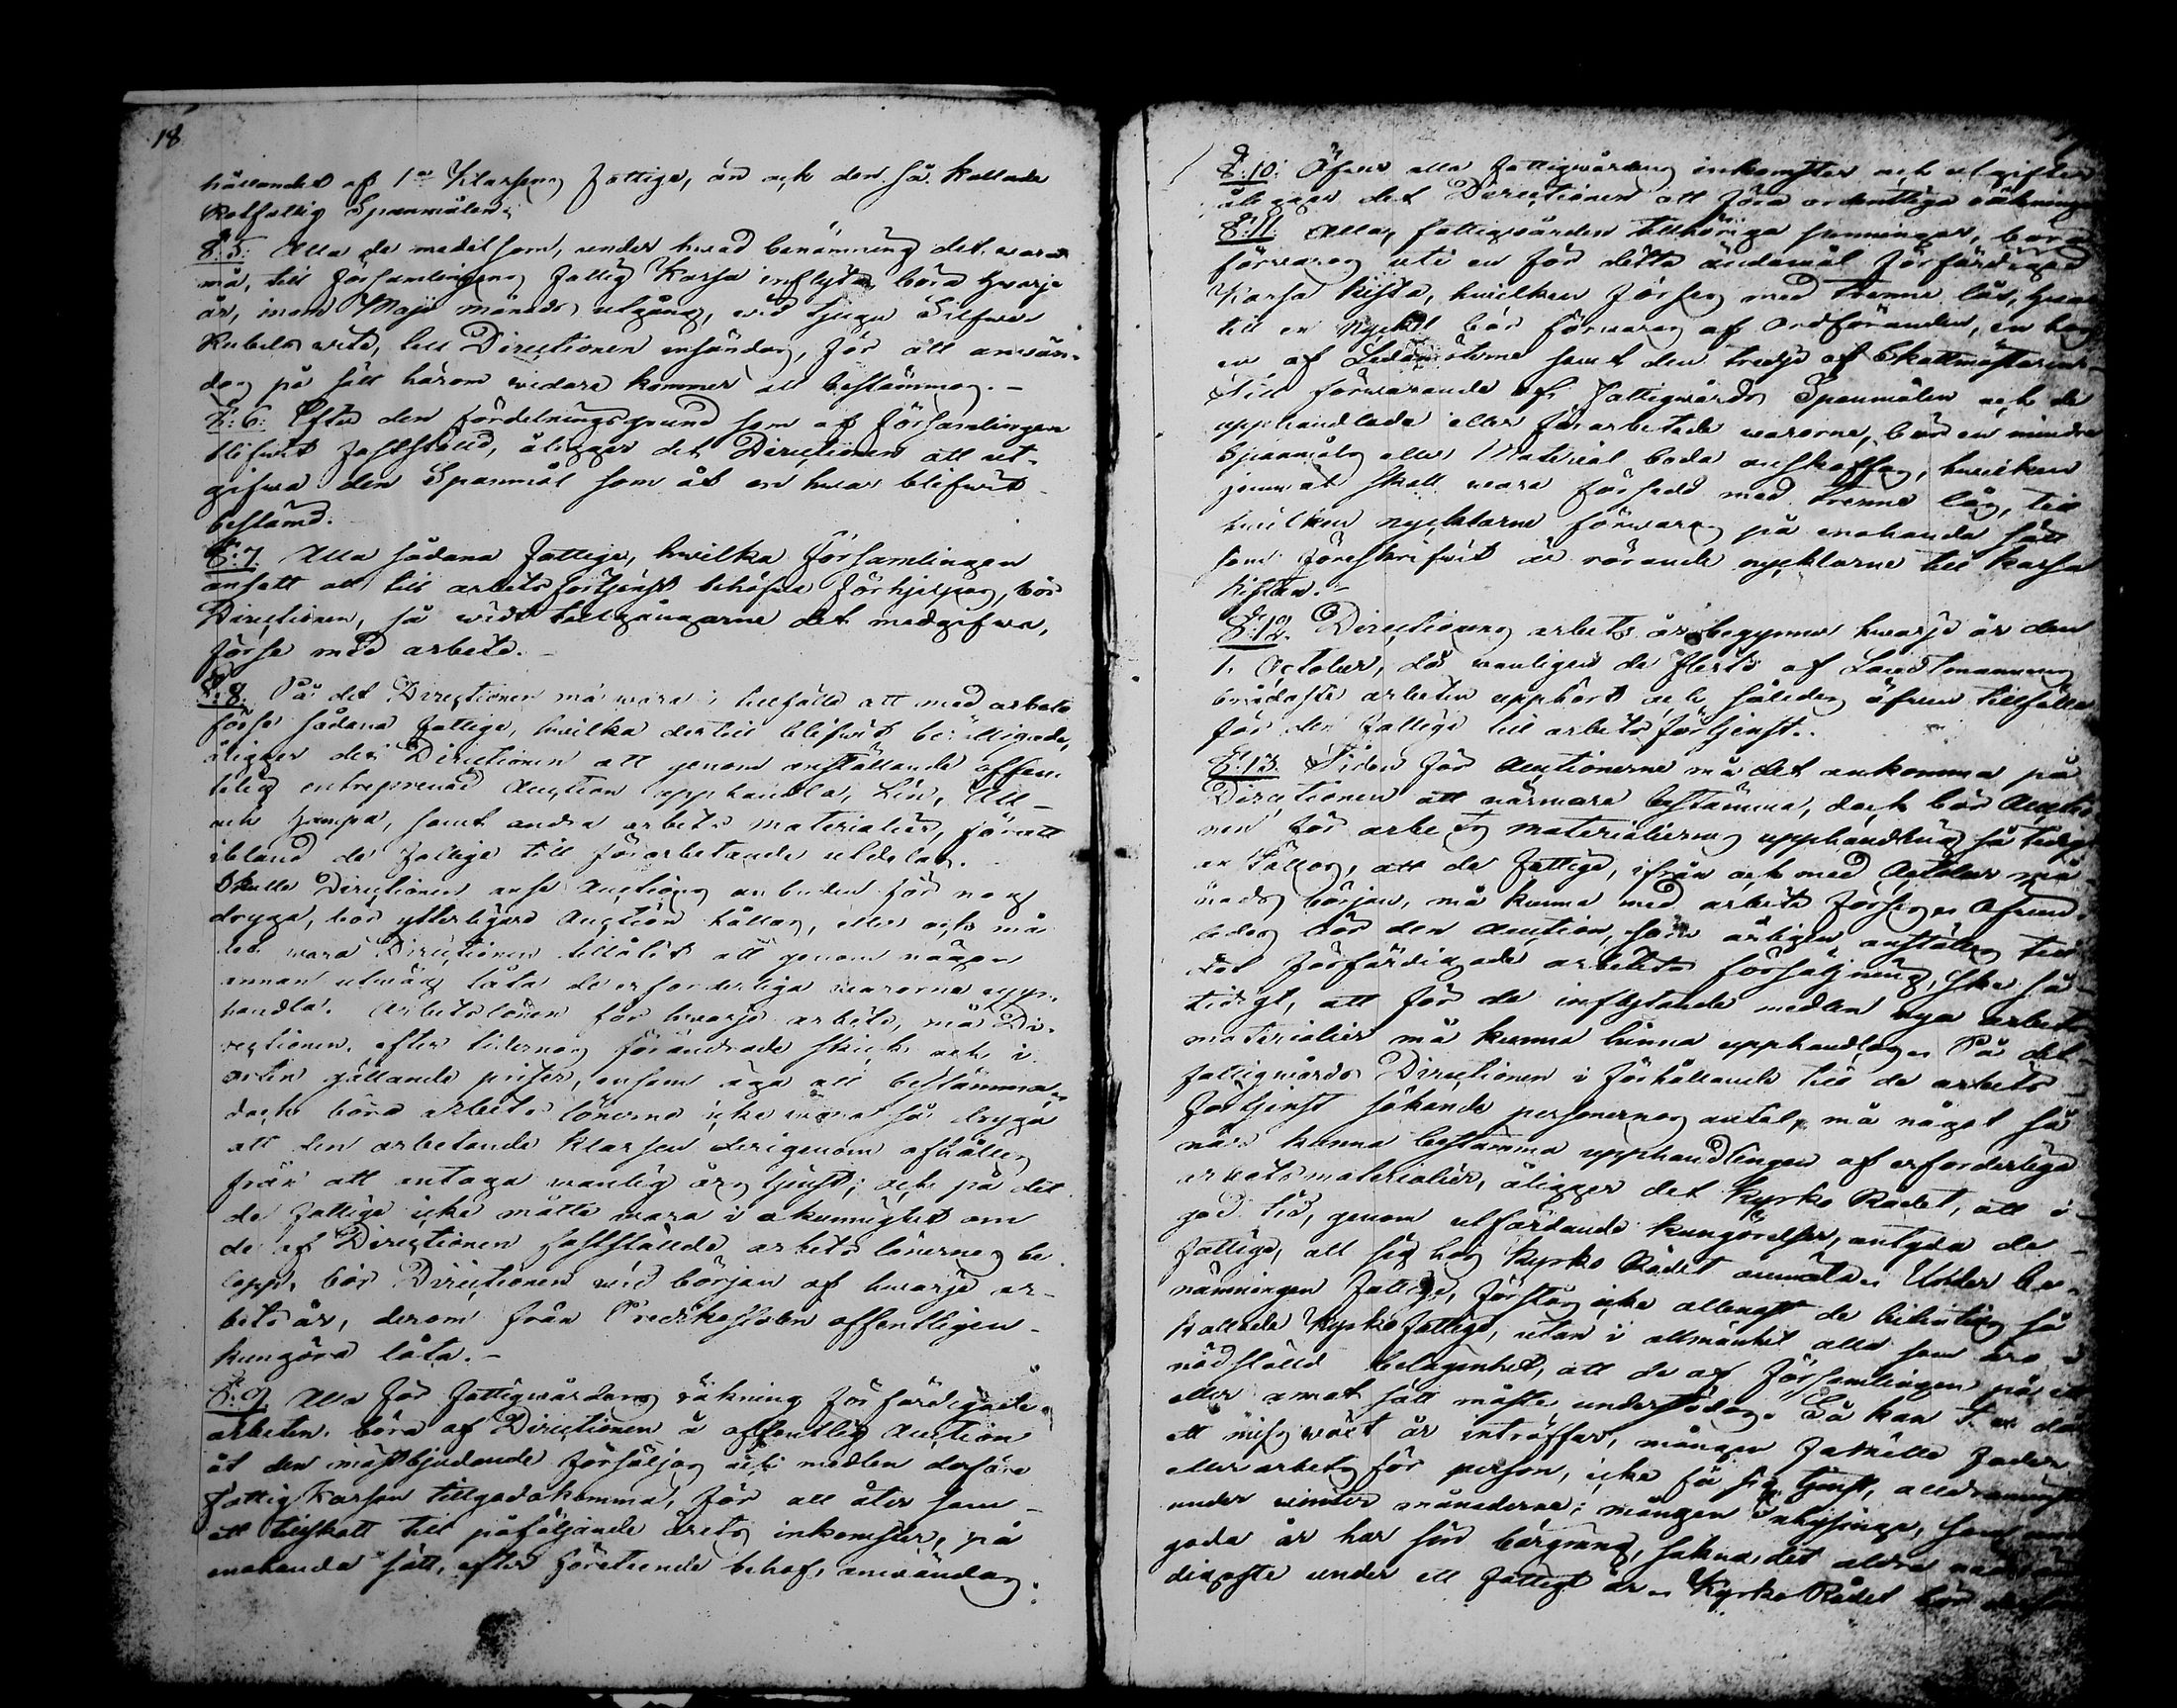 18
hållandet af 1a Klassens Fattige, än och den så kallade
Rotfattig Spanmålen.
§:5: Alla de medel som, under hwad benämning det wara
må, till Församlingens Fattig Kassa inflyta, böra hwarje
år, inom Maji månads utgång, wid tjugu Silfwer
Rubels wite, till Directionen insändas, för att använ-
das på sätt härom widare kommer att bestämmas.-
§:6: Efter den fördelningsgrund som af Församlingen
blifwit fastställd, åligger det Directionen att ut-
gifwa den Spanmål som åt en hwar blifwit
bestämd.
§:7. Alla sådana Fattige, hwilka Församlingen
ansett att till arbetsförtjenst behöfwa förhjelpas, bör
Directionen, så widt tillgångarne det medgifwa,
förse med arbete.-
§:8. På det Directionen må wara i tillfälle att med arbete
förse sådana Fattige, hwilka dertill blifwit berättigade,
åligger det Directionen att genom anställande offen-
telig entreprenad Auction upphandla, Lin, Ull-
och Hampa, samt andra arbets materialier, för att
ibland de Fattige till förarbetande utdelas.
Skulle Directionen anse Auctions anbuden för nog
dryga, bör ytterligare Auction hållas, eller och må
det wara Directionen tillåtit att genom någon
annan utwäg låta de erforderliga warorna upp-
handla. Arbetslönen för hwarje arbete, må Di-
rectionen, efter tidernas förändrade skick och i
orten gällande priser, ensam äga att bestämma,
dock böra arbets lönerne icke wara så dryga
att den arbetande Klassen derigenom afhålles
från att antaga wanlig års tjenst; och på det
de Fattige icke måtte wara i okunnighet om
de af Directionen fastställde arbets lönernes be-
lopp, bör Directionen wid början af hwarje ar-
bets år, derom från Predikostolen offentligen
kungöra låta.-
§:9. Alla för Fattigwårdens räkning förfärdigade
arbeten, böra af Directionen å offentlig Auction
åt den mästbjudande försäljas och medlen derföre
Fattig Kassan tillgodokomma, för att åter som
ett tillskott till påföljande årets inkomster, på
enahanda sätt, efter företeende behof, användas.
§:10: Öfwer alla Fattigwårdens inkomster och utgifter
åligger det Directionen att föra ordentliga räkningar
§:11: Alla, fattigwården tillhöriga penningar, böra
förwaras uti en för detta ändamål förfärdigad
Kassa Kista, hwilken förses med trenne lås, hwar-
till en Nyckel bör förwaras af Ordföranden, en hos
en af Ledamöterne samt den tredje af Skattmästaren-
Till förwarande af Fattigwårds Spanmålen och de
upphandlade eller förarbetade warorne, bör en mindre
Spanmåls eller Material boda anskaffas, hwilken
jemwäl skall wara försedd med trenne lås, till
hwilken nycklarne förwaras på enahanda sätt
som föreskrifwit är rörande nycklarne till Kassa
Kistan.-
§:12. Directionens arbets år begynner hwarje år den
1. October, då wanligen de flesta af Landtmannens
brådaste arbeten upphört och således äfwen tillfälle
för den Fattige till arbets förtjenst.
§:13. Tiden för Auctionerne må det ankomma på
Directionen att närmare bestämma, dock bör Auctio-
nen för arbets materialiernas upphandling så tidigt
en hållas, att de Fattige, ifrån och med October må-
nads början, må kunna med arbete förses. Äfwen-
ledes bör den Auction, som årligen anställes till
det förfärdigade arbetets försäljning, ske så
tidigt, att för de inflytande medlen nya arbets
materialier må kunna hinna upphandlas. På det
fattigwårds Directionen i förhållande till de arbets
förtjenst sökande personernas antal, må något så
när kunna bestämma upphandlingen af erforderliga
arbetsmaterialier, åligger det Kyrko Rådet, att i
god tid, genom utfärdande kungörelser, antyda de
Fattige, att sig hos Kyrko Rådet anmäla. Under be-
nämningen Fattige, förstås icke allenast de
Kallade Kyrko Fattige, utan i allmänhet alla som äro i
nödställd belägenhet, att de af Församlingen på ett
eller annat sätt måste understödas. Så kan t. ex. då
ett missväxt år inträffar, mången Familje Fader
eller arbets för person, icke få sig tjenst, alldraminst
under winter månaderne; mången Inhysinge, som
goda år har sin bergning, sakna det aldra
digaste under ett Fattigt år. Kyrko Rådet bör